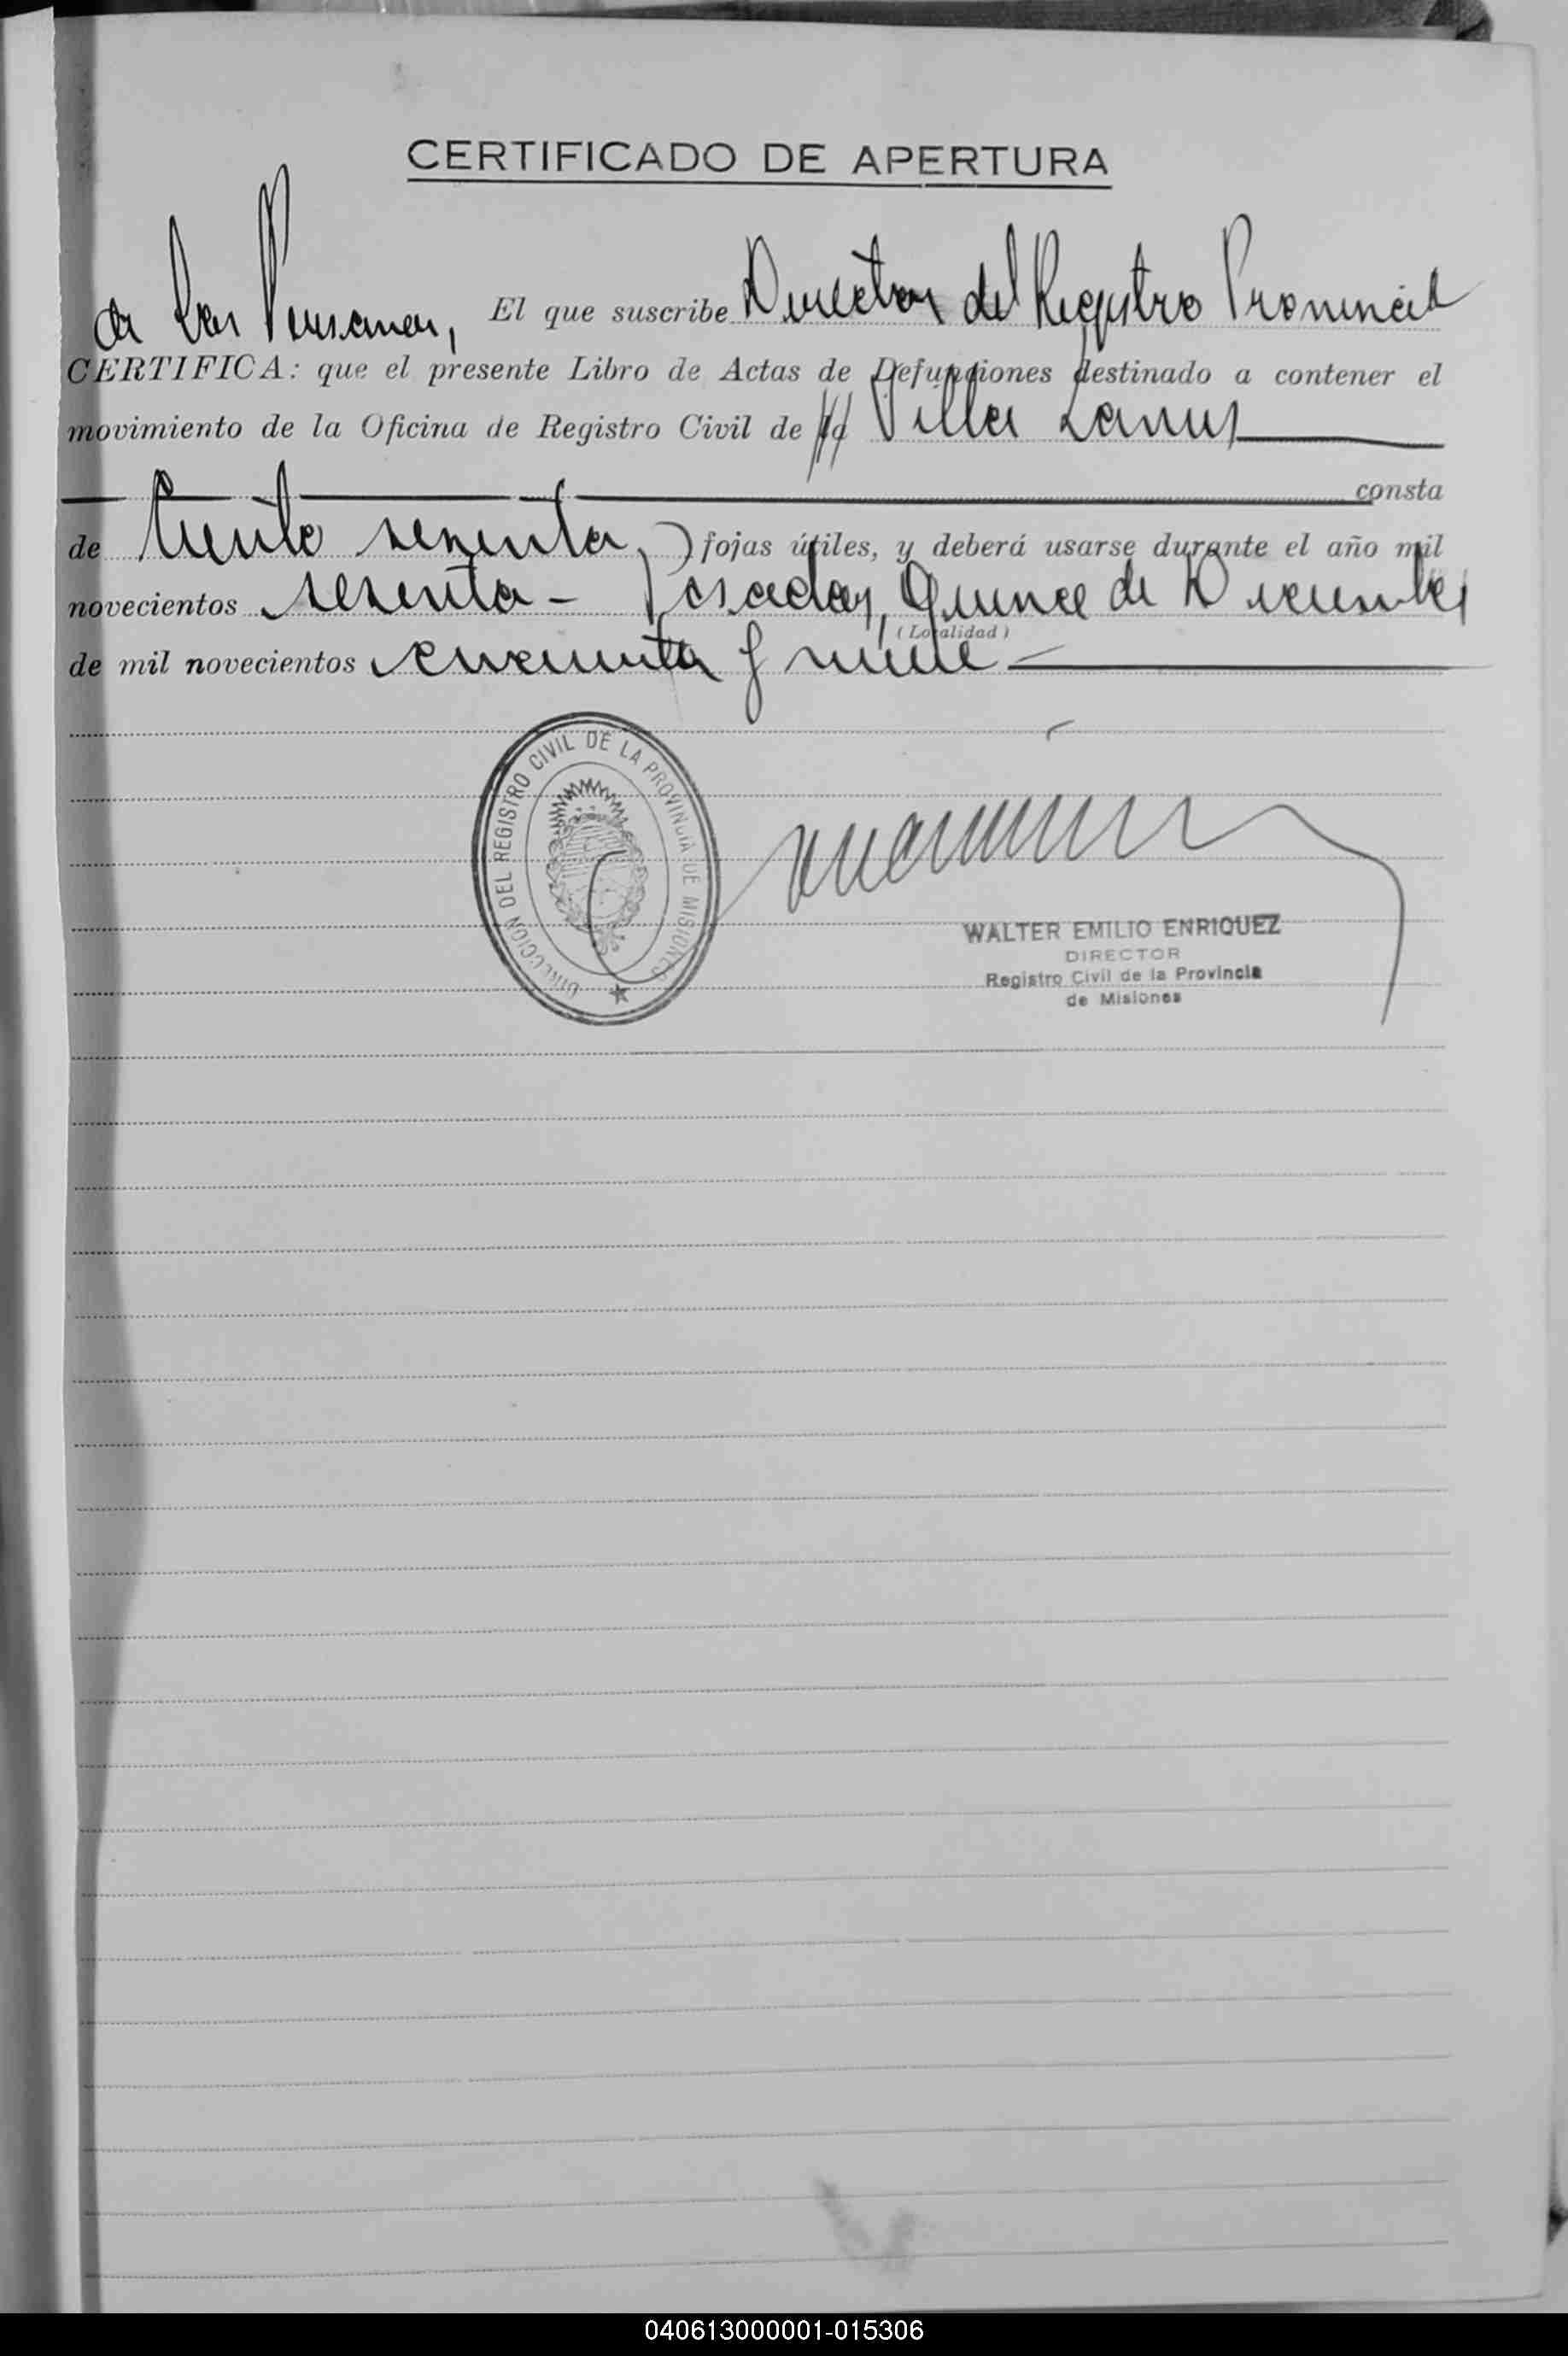 CERTIFICADO DE APERTURA
de las Personas, El que suscribe Director del Registro Provincial
CERTIFICA: que el presente Libro de Actas de Defunciones destinado a contener el
movimiento de la Oficina de Registro Civil de Villa Lanus
consta
de Ciento sesenta, ) fojas útiles, y deberá usarse durante el año mil
novecientos sesenta - Posadas, Quince de Diciembre
(Localidad)
de mil novecientos cincuenta y nueve
DIRECCION DEL REGISTRO CIVIL DE LA PROVINCIA DE MISIONES
WALTER EMILIO ENRIQUEZ
DIRECTOR
Registro Civil de la Provincia
de Misiones
040613000001-015306